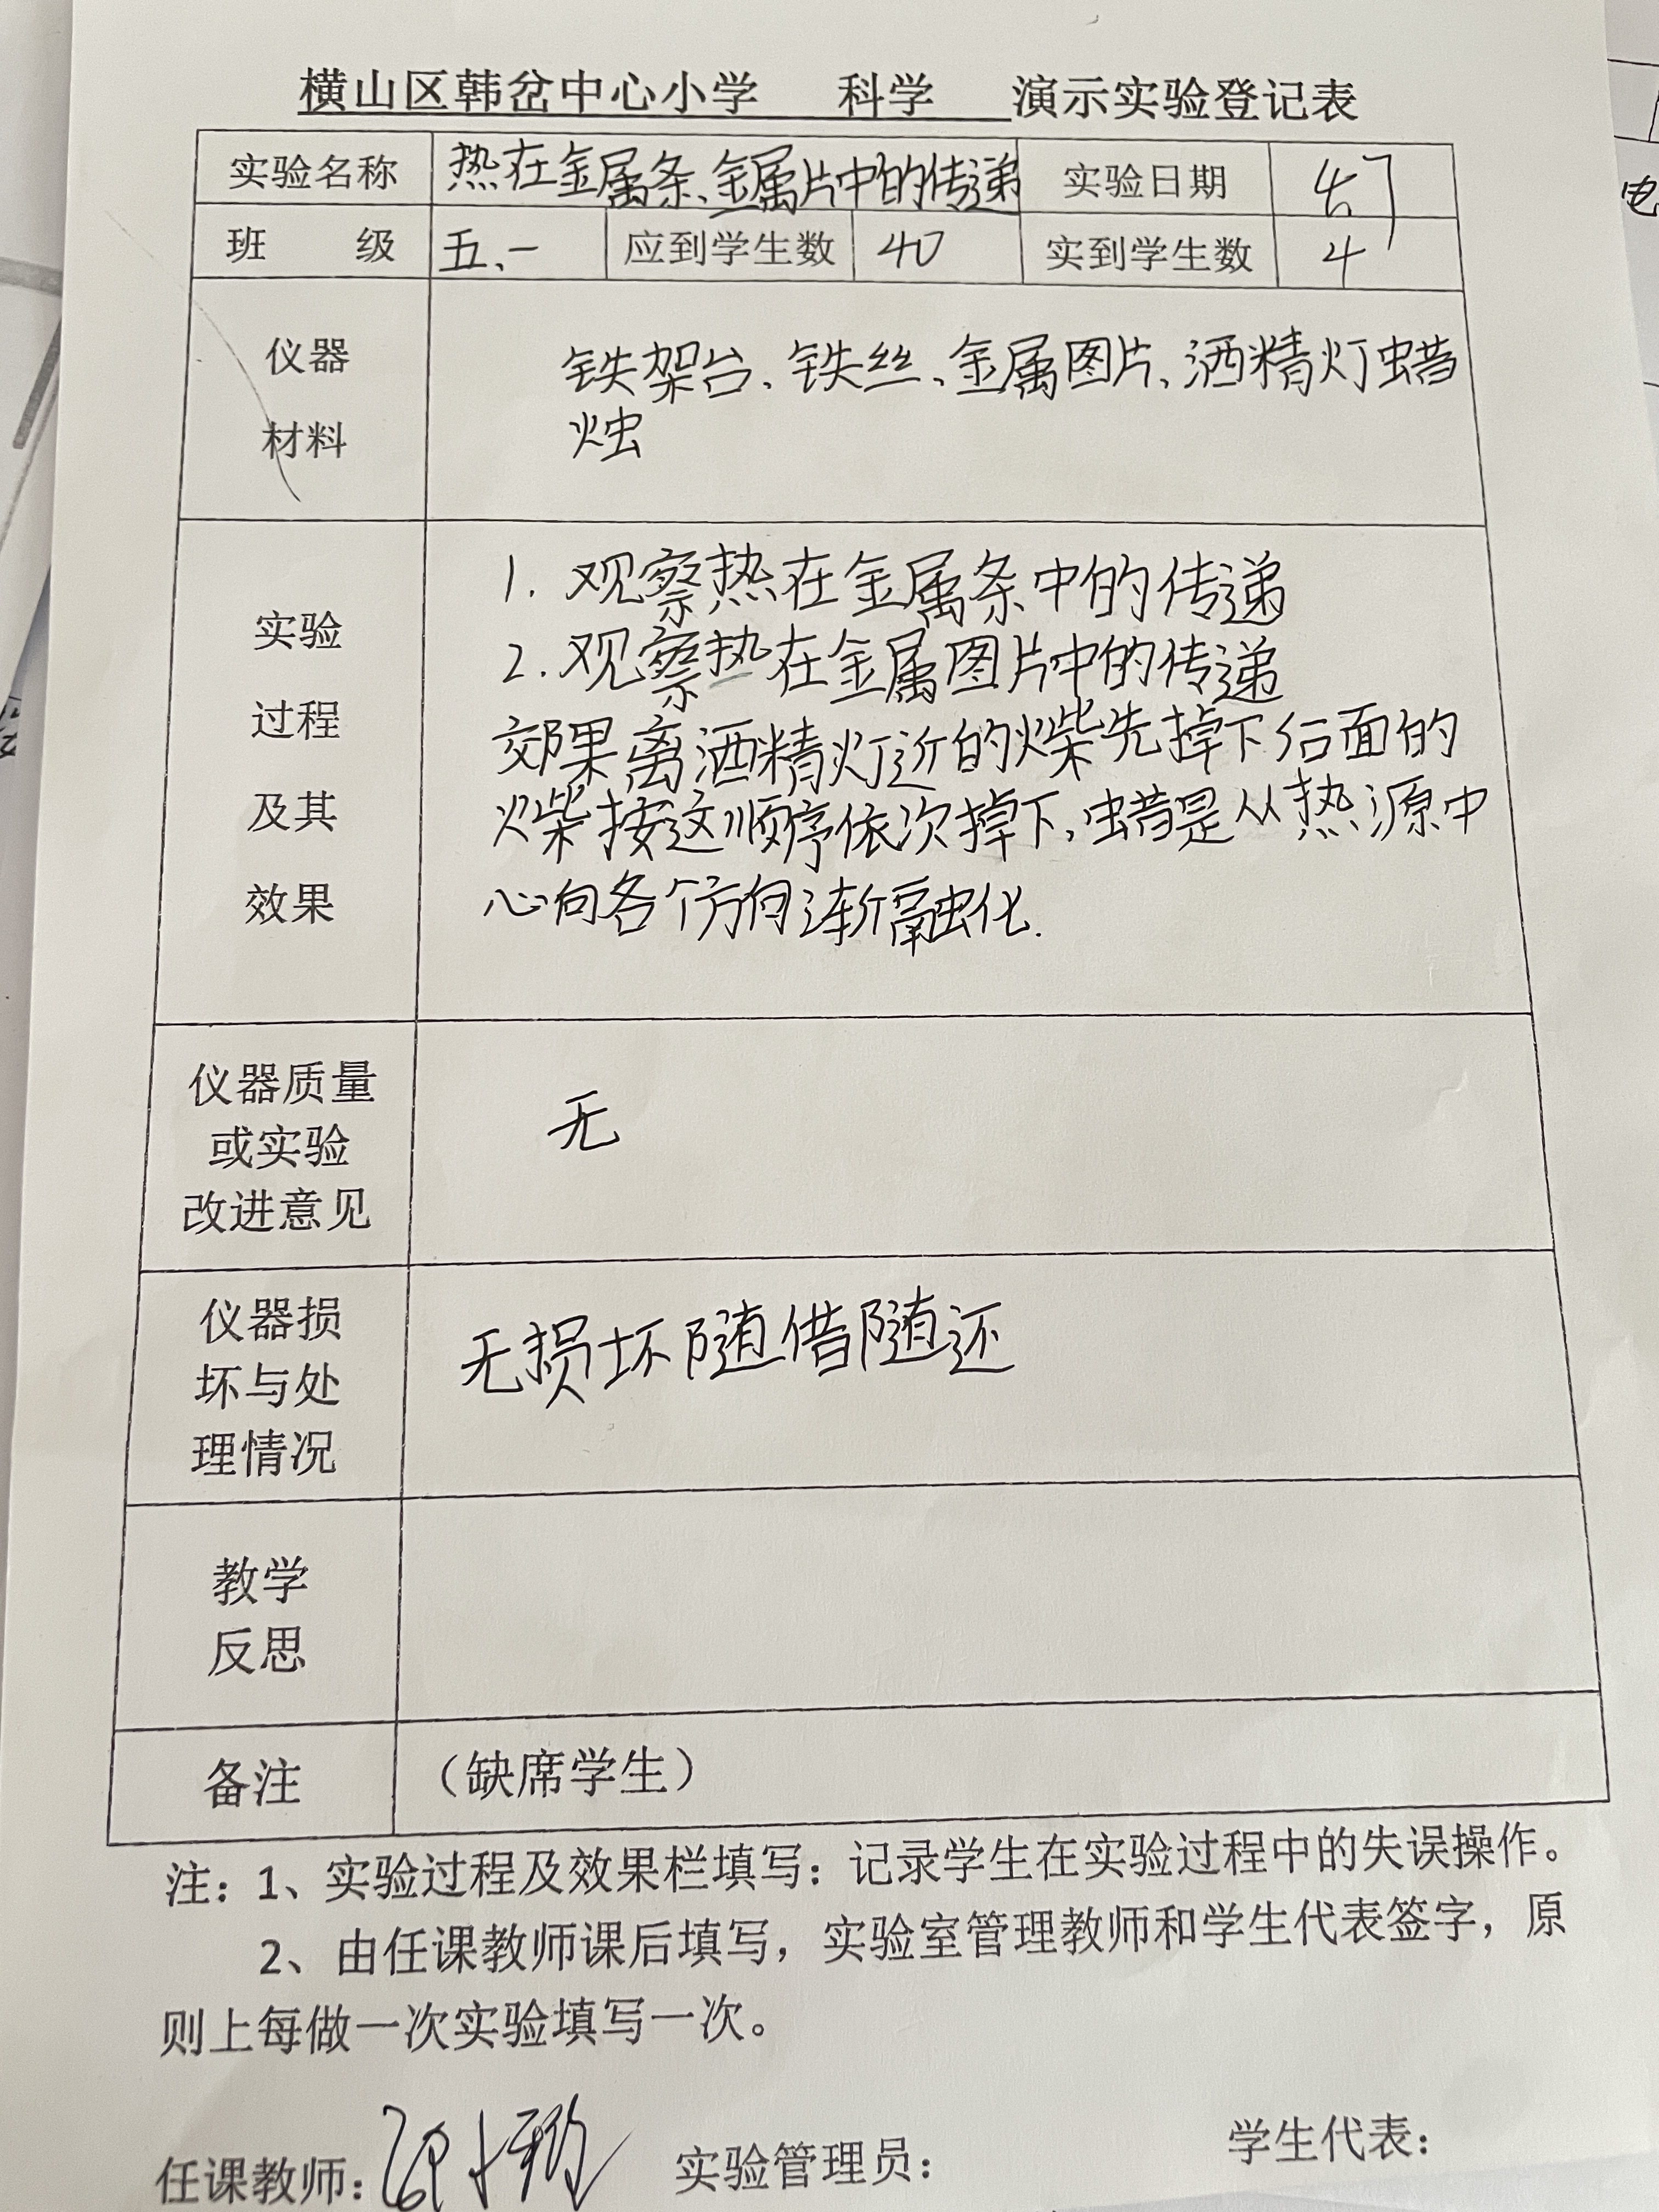 横山区韩岔中心小学 科学 演示实验登记表
实验名称 热在金属条、金属片中的传递 实验日期
班 级 五、一 应到学生数 40 实到学生数 4
仪器
材料
铁架台、铁丝、金属图片、洒精灯蜡
烛
实验
过程
及其
效果
1. 观察热在金属条中的传递
2. 观察热在金属图片中的传递
郊果离洒精灯近的火柴先掉下后面的
火柴按这顺序依次掉下,蜡是从热源中
心向各个方向渐融化.
仪器质量
或实验
改进意见
无
仪器损
坏与处
理情况
无损坏随借随还
教学
反思
备注 (缺席学生)
注：1、实验过程及效果栏填写：记录学生在实验过程中的失误操作。
2、由任课教师课后填写，实验室管理教师和学生代表签字，原
则上每做一次实验填写一次。
任课教师： 实验管理员： 学生代表：
电